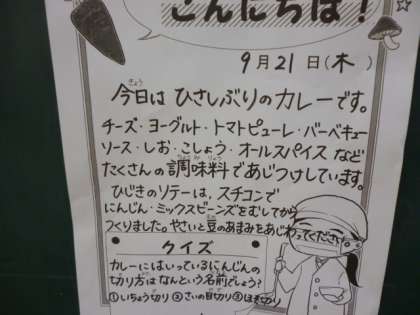 こんにちは！
9月21日(木)
きょう
今日は ひさしぶりのカレーです。
チーズ・ヨーグルト・トマトピューレ・バーベキュー
ソース・しお・こしょう・オールスパイス など
ちょうみりょう
たくさんの調味料であじつけしています。
ひじきのソテーは、スチコンで
にんじん・ミックスビーンズをむしてから
つくりました。やさいと豆のあまみをあじわってください。
クイズ
カレーにはいっているにんじんの
切り方はなんという名前でしょう？
①いちょう切り ②さいの目切り ③ほそ切り